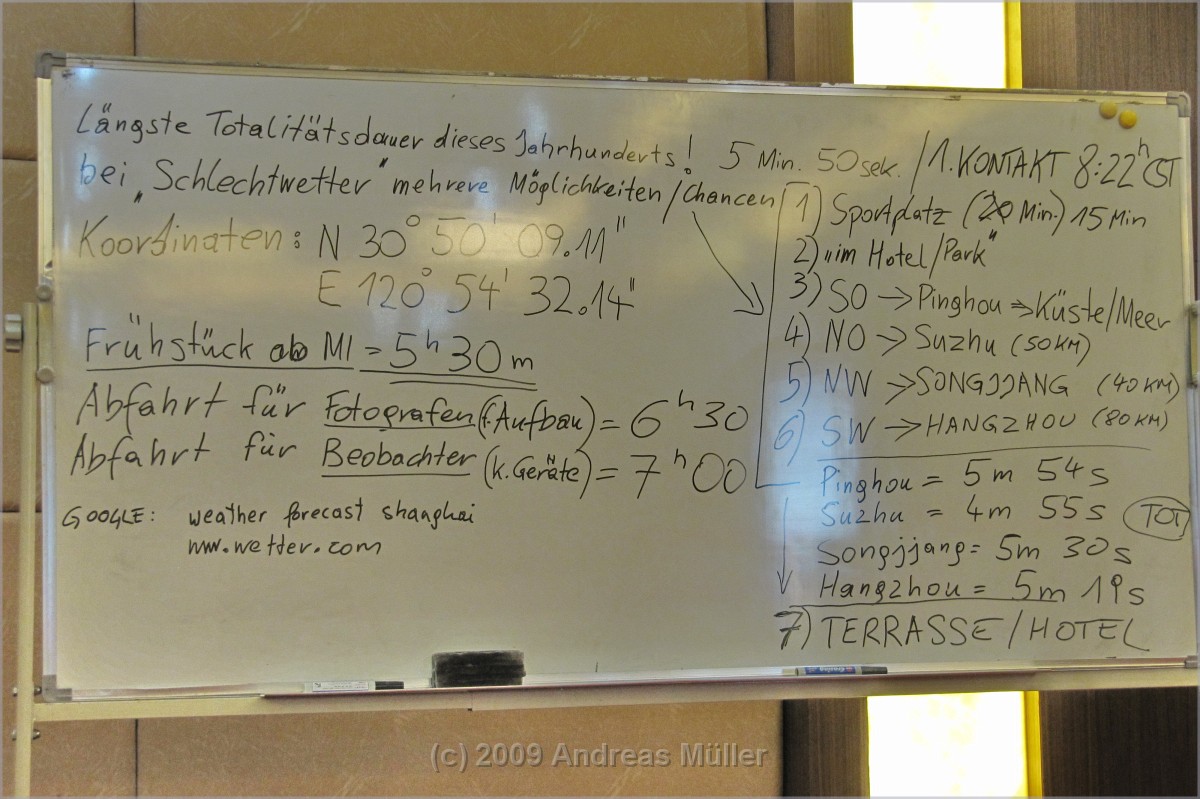 Längste Totalitätsdauer dieses Jahrhunderts! 5 Min. 50 sek. / 1. KONTAKT 8:22h CST
bei „Schlechtwetter" mehrere Möglichkeiten / Chancen
Koordinaten: N 30° 50' 09.11"
E 120° 54' 32.14"
Frühstück ab MI = 5h 30m
Abfahrt für Fotografen (f. Aufbau) = 6h 30
Abfahrt für Beobachter (k. Geräte) = 7h 00
GOOGLE: weather forecast shanghai
www.wetter.com
1) Sportplatz (20 Min.) 15 Min
2) „im Hotel/Park"
3) SO → Pinghou ⇒ Küste/Meer
4) NO → Suzhu (50 KM)
5) NW → SONGJJANG (40 KM)
6) SW → HANGZHOU (80 KM)
Pinghou = 5m 54s
Suzhu = 4m 55s TOT
Songjjang = 5m 30s
Hangzhou = 5m 19s
7) TERRASSE / HOTEL
(c) 2009 Andreas Müller